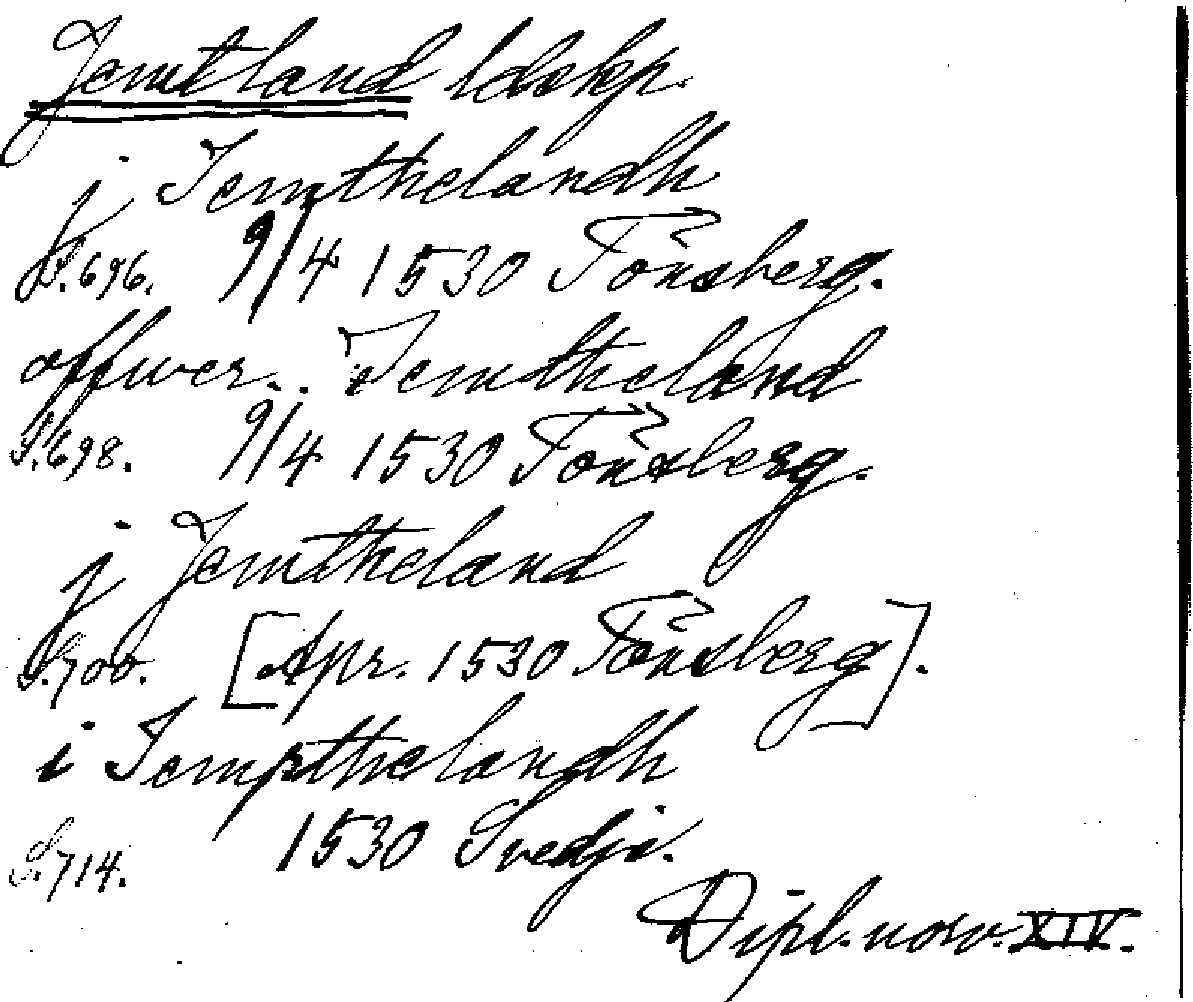 Jemtland ldskp.
j Jemthelandh
S. 696. 9/4 1530 Tönsberg.
offwer.. Jemtheland
S. 698. 9/4 1530 Tönsberg.
j Jemtheland
S. 700. [Apr. 1530 Tönsberg].
i Jempthelandh
S. 714. 1530 Svedje.
Dipl. norv. XIV.